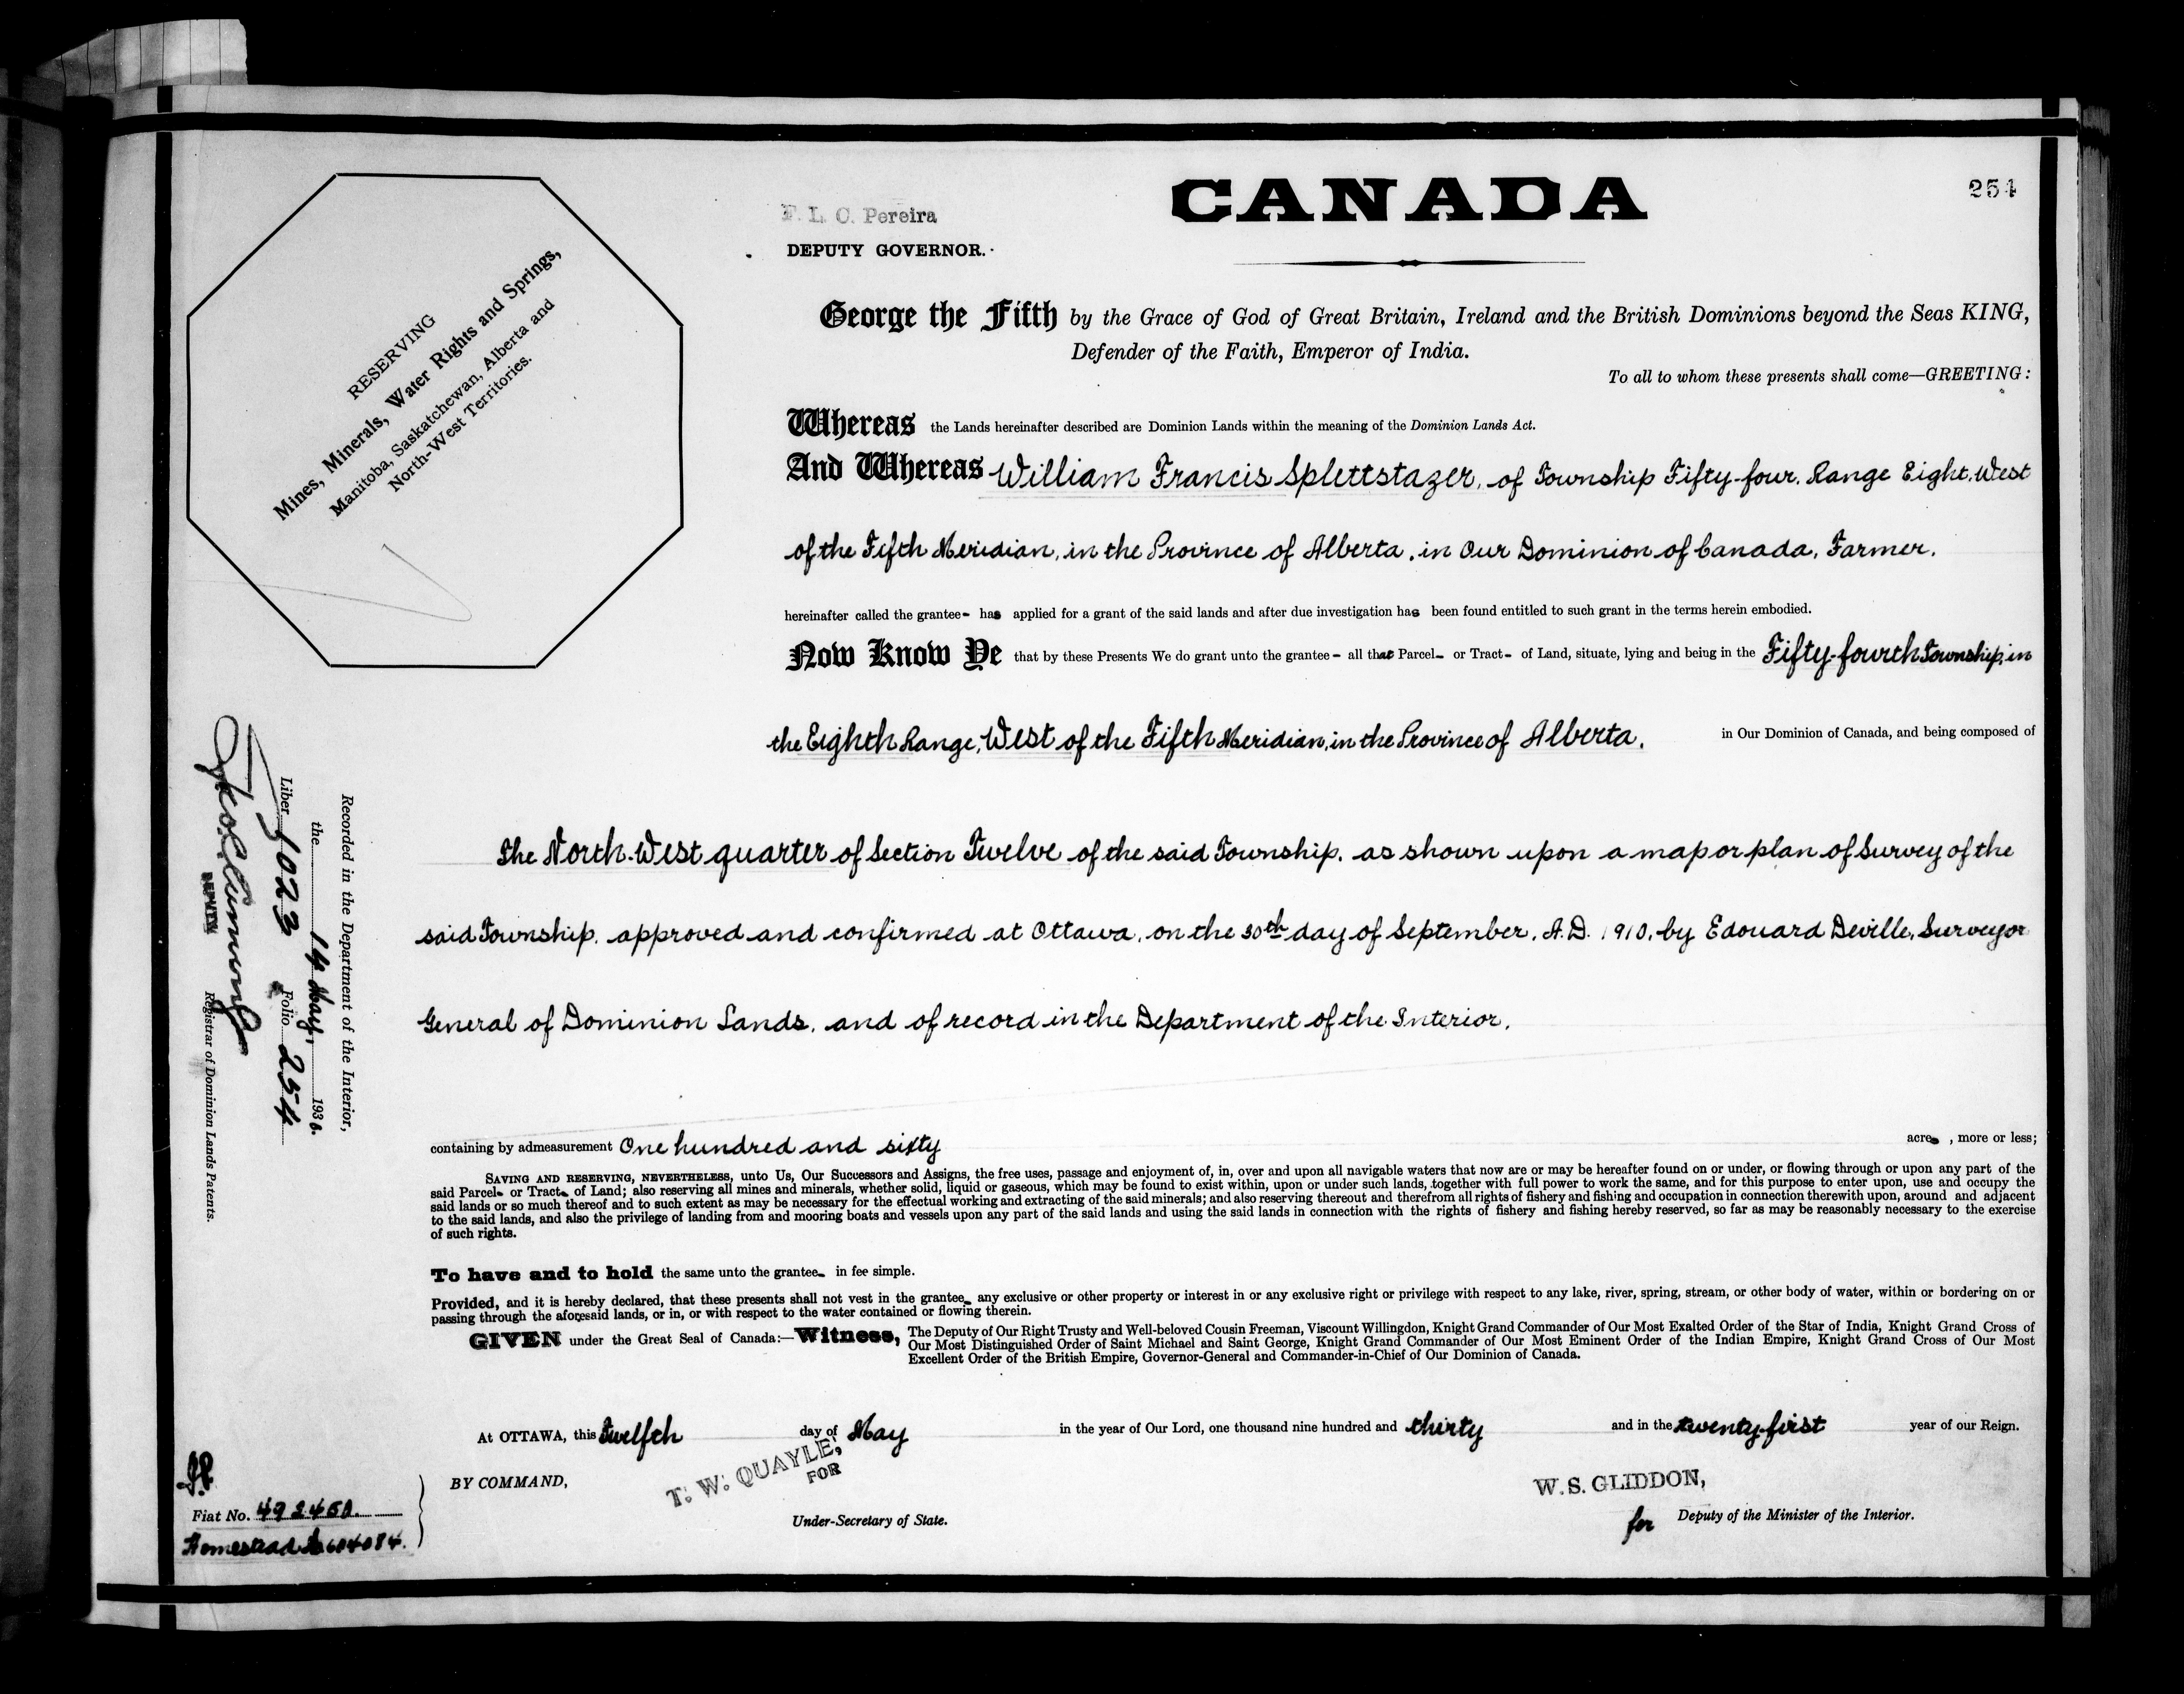 254
CANADA
F. L. C. Pereira
DEPUTY GOVERNOR.
RESERVING
Mines, Minerals, Water Rights and Springs,
Manitoba, Saskatchewan, Alberta and
North-West Territories.
George the Fifth by the Grace of God of Great Britain, Ireland and the British Dominions beyond the Seas KING,
Defender of the Faith, Emperor of India.
To all to whom these presents shall come—GREETING:
Whereas the Lands hereinafter described are Dominion Lands within the meaning of the Dominion Lands Act.
And Whereas William Francis Splettstazer, of Township Fifty-four, Range Eight, West
of the Fifth Meridian, in the Province of Alberta, in Our Dominion of Canada, Farmer,
hereinafter called the grantee- has applied for a grant of the said lands and after due investigation has been found entitled to such grant in the terms herein embodied.
Now Know Ye that by these Presents We do grant unto the grantee- all that Parcel- or Tract- of Land, situate, lying and being in the Fifty-fourth Township, in
the Eighth Range, West of the Fifth Meridian, in the Province of Alberta, in Our Dominion of Canada, and being composed of
the North-West quarter of Section Twelve of the said Township, as shown upon a map or plan of Survey of the
said Township, approved and confirmed at Ottawa, on the 30th day of September, A.D. 1910, by Edouard Deville, Surveyor
General of Dominion Lands, and of record in the Department of the Interior,
containing by admeasurement One hundred and sixty acres, more or less;
SAVING AND RESERVING, NEVERTHELESS, unto Us, Our Successors and Assigns, the free uses, passage and enjoyment of, in, over and upon all navigable waters that now are or may be hereafter found on or under, or flowing through or upon any part of the
said Parcel- or Tract- of Land; also reserving all mines and minerals, whether solid, liquid or gaseous, which may be found to exist within, upon or under such lands, together with full power to work the same, and for this purpose to enter upon, use and occupy the
said lands or so much thereof and to such extent as may be necessary for the effectual working and extracting of the said minerals; and also reserving thereout and therefrom all rights of fishery and fishing and occupation in connection therewith upon, around and adjacent
to the said lands, and also the privilege of landing from and mooring boats and vessels upon any part of the said lands and using the said lands in connection with the rights of fishery and fishing hereby reserved, so far as may be reasonably necessary to the exercise
of such rights.
To have and to hold the same unto the grantee- in fee simple.
Provided, and it is hereby declared, that these presents shall not vest in the grantee- any exclusive or other property or interest in or any exclusive right or privilege with respect to any lake, river, spring, stream, or other body of water, within or bordering on or
passing through the aforesaid lands, or in, or with respect to the water contained or flowing therein.
GIVEN under the Great Seal of Canada:—Witness, The Deputy of Our Right Trusty and Well-beloved Cousin Freeman, Viscount Willingdon, Knight Grand Commander of Our Most Exalted Order of the Star of India, Knight Grand Cross of
Our Most Distinguished Order of Saint Michael and Saint George, Knight Grand Commander of Our Most Eminent Order of the Indian Empire, Knight Grand Cross of Our Most
Excellent Order of the British Empire, Governor-General and Commander-in-Chief of Our Dominion of Canada.
At OTTAWA, this Twelfth day of May in the year of Our Lord, one thousand nine hundred and thirty and in the twenty-first year of our Reign.
BY COMMAND,
T. W. QUAYLE,
FOR
Under-Secretary of State.
W. S. GLIDDON,
for Deputy of the Minister of the Interior.
Recorded in the Department of the Interior,
the 14 May, 1930.
Liber 1023 Folio 254
DEPUTY
Registrar of Dominion Lands Patents.
Fiat No.
Homestead